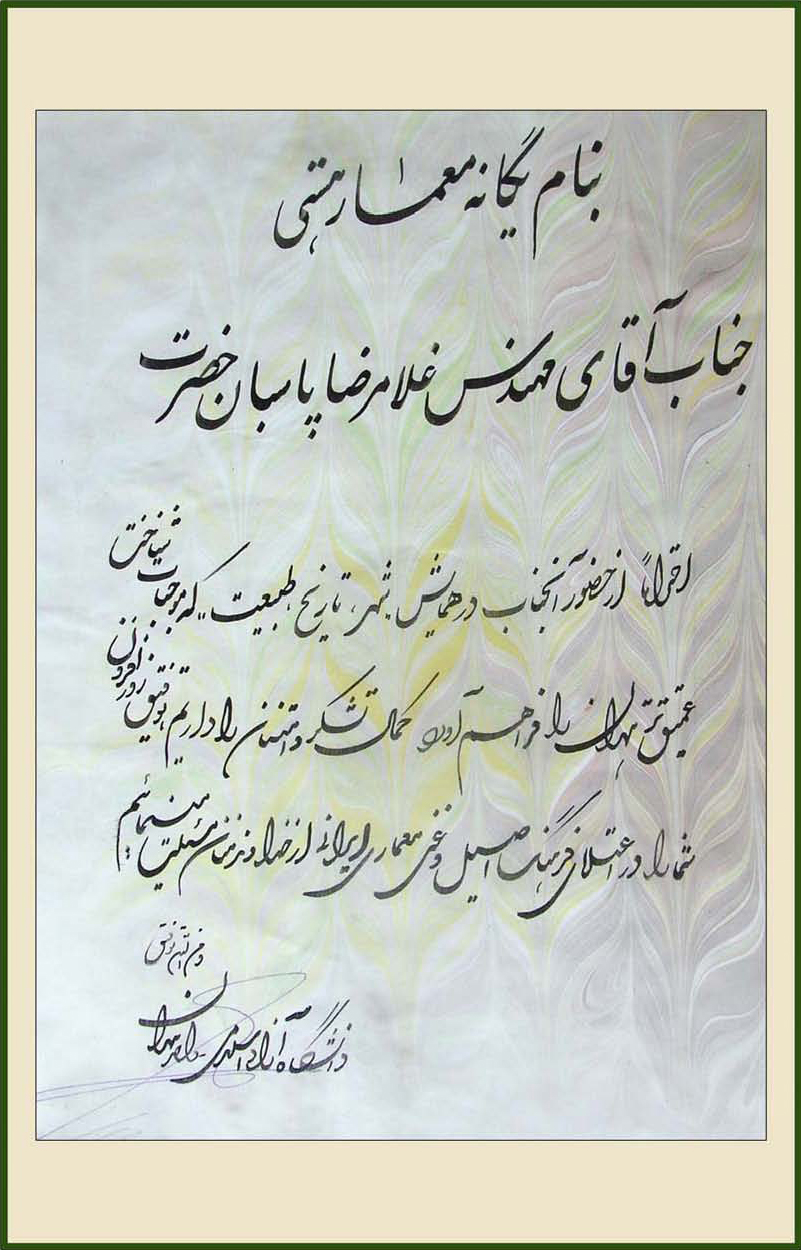 بنام یگانه معمار هستی
جناب آقای مهندس غلامرضا پاسبان حضرت
احتراماً از حضور آنجناب در همایش شهر، تاریخ، طبیعت که موجبات شناخت
عمیق تر تهران را فراهم آورد کمال تشکر و امتنان را داریم توفیق روز افزون
شما را در اعتلای فرهنگ اصیل و غنی معماری ایرانی از خداوند منان مسئلت مینمائیم
و من الله توفیق
دانشگاه آزاد اسلامی واحد تهران